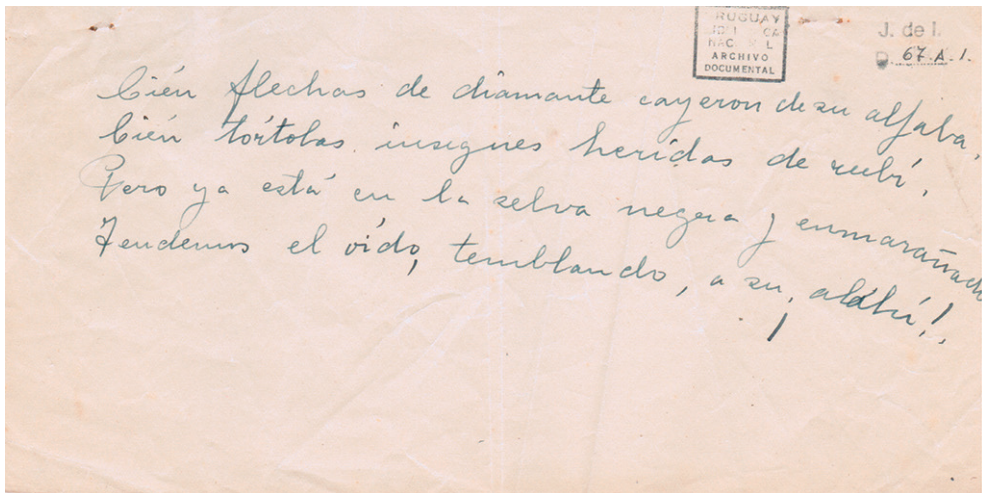 RUGUAY
ARCHIVO
DOCUMENTAL
J. de I.
D. 67-A-1.
Cién flechas de diamante cayeron de su aljaba,
Cién tórtolas insignes heridas de rubí,
Pero ya está en la selva negra y enmarañada
Tendemos el oído, temblando, a su